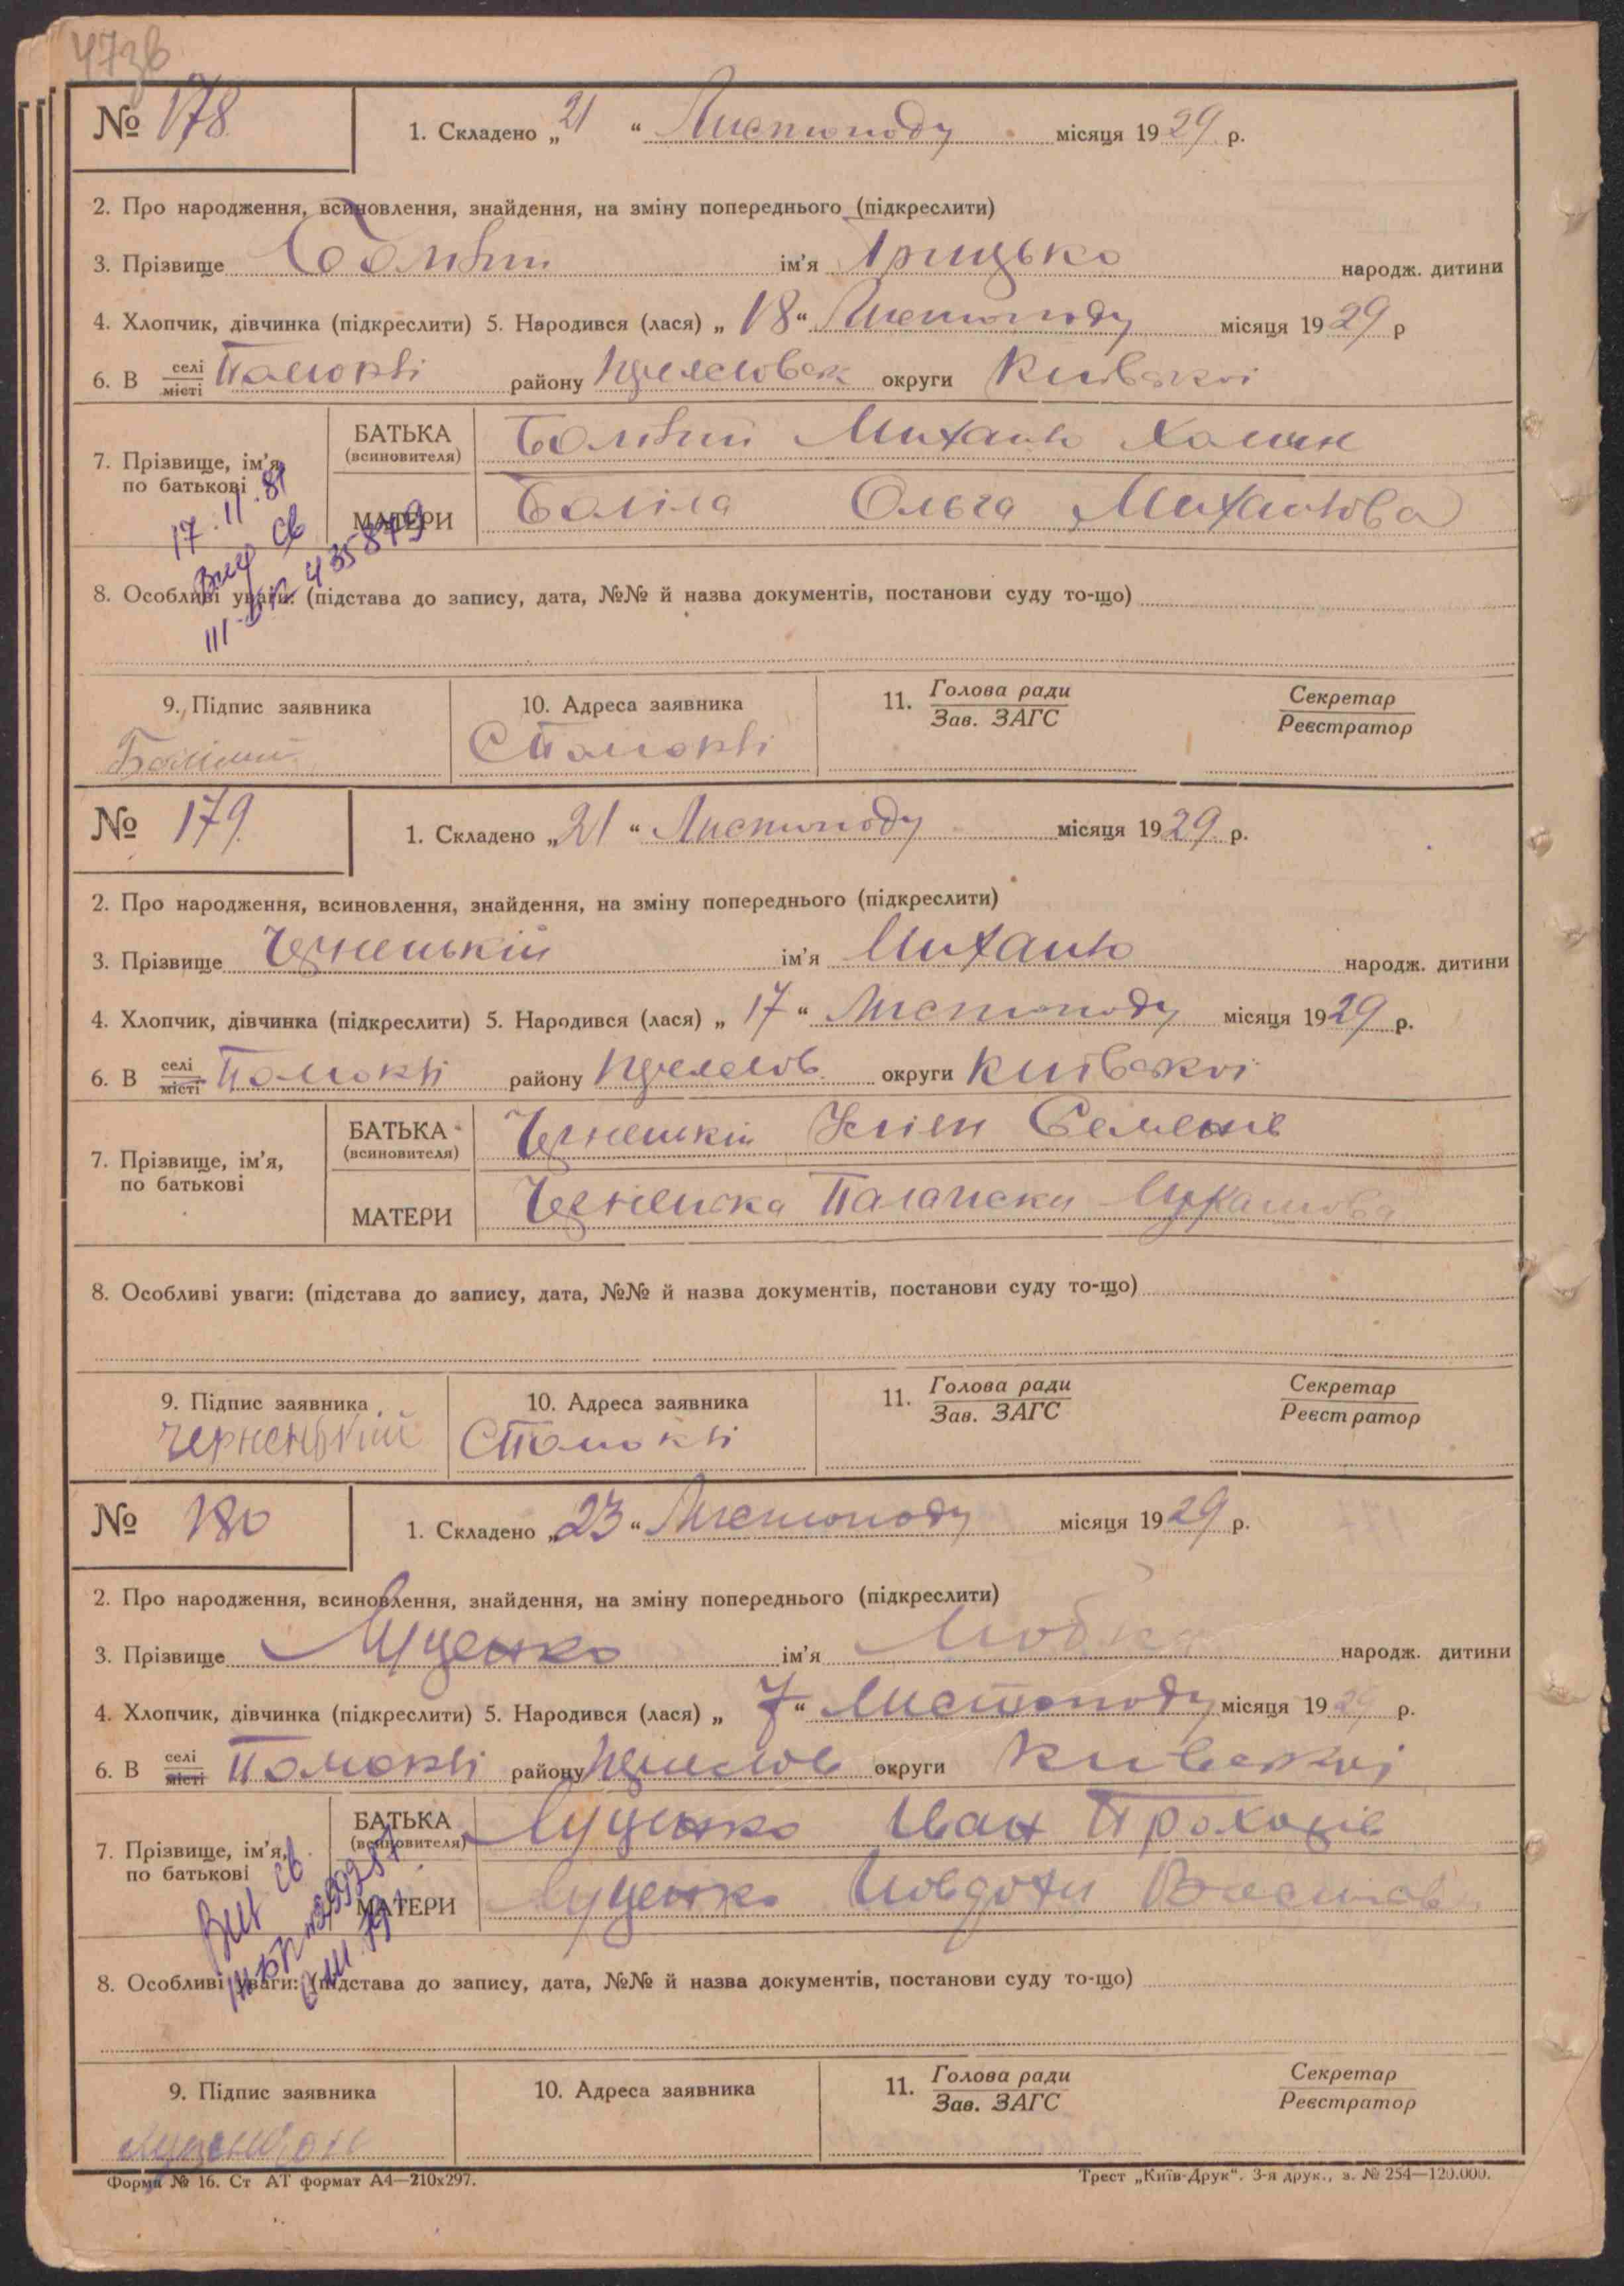 473в
№ 178
1. Складено „21“ Листопаду місяця 1929 р.
2. Про народження, всиновлення, знайдення, на зміну попереднього (підкреслити)
3. Прізвище ім'я Грицько народж. дитини
4. Хлопчик, дівчинка (підкреслити) 5. Народився (лася) „18“ Листопаду місяця 1929 р
6. В селі/місті Помоклі району округи Київської
7. Прізвище, ім'я, по батькові
БАТЬКА (всиновителя) Михайло
МАТЕРИ Ольга Михайлова
17.11.81
8. Особливі уваги: (підстава до запису, дата, №№ й назва документів, постанови суду то-що)
9. Підпис заявника 10. Адреса заявника 11. Голова ради / Зав. ЗАГС Секретар / Реєстратор
С Помоклі
№ 179
1. Складено „21“ Листопаду місяця 1929 р.
2. Про народження, всиновлення, знайдення, на зміну попереднього (підкреслити)
3. Прізвище ім'я Михайло народж. дитини
4. Хлопчик, дівчинка (підкреслити) 5. Народився (лася) „17“ Листопаду місяця 1929 р.
6. В селі/місті Помоклі району округи Київської
7. Прізвище, ім'я, по батькові
БАТЬКА (всиновителя) Семенів
МАТЕРИ
8. Особливі уваги: (підстава до запису, дата, №№ й назва документів, постанови суду то-що)
9. Підпис заявника 10. Адреса заявника 11. Голова ради / Зав. ЗАГС Секретар / Реєстратор
Черненький С Помоклі
№ 180
1. Складено „23“ Листопаду місяця 1929 р.
2. Про народження, всиновлення, знайдення, на зміну попереднього (підкреслити)
3. Прізвище Луценко ім'я Любка народж. дитини
4. Хлопчик, дівчинка (підкреслити) 5. Народився (лася) „7“ Листопаду місяця 1929 р.
6. В селі/місті Помоклі району округи Київської
7. Прізвище, ім'я, по батькові
БАТЬКА (всиновителя) Луценко Іван
МАТЕРИ Луценко
8. Особливі уваги: (підстава до запису, дата, №№ й назва документів, постанови суду то-що)
9. Підпис заявника 10. Адреса заявника 11. Голова ради / Зав. ЗАГС Секретар / Реєстратор
Форма № 16. Ст АТ формат А4—210х297. Трест „Київ-Друк“. 3-я друк., з. № 254—120.000.